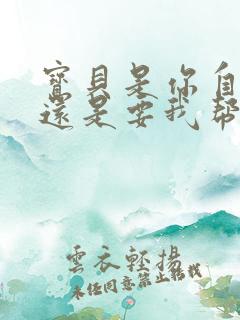 寶貝是你自
還是要我幫
雲衣輕揚
未經同意禁止轉載